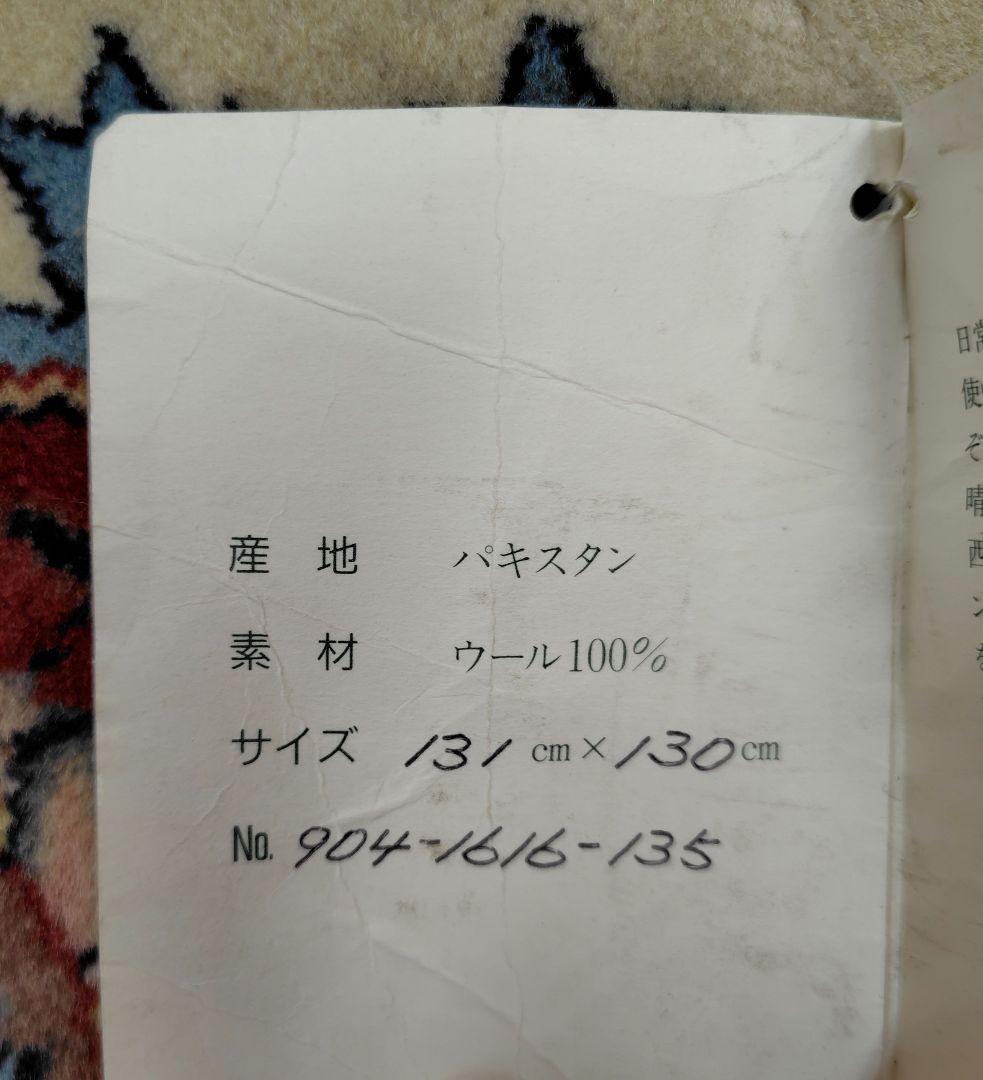 産 地 パキスタン
素 材 ウール100%
サイズ 131cm×130cm
No. 904-1616-135
日常
使
ぞ
晴
西
ン
を